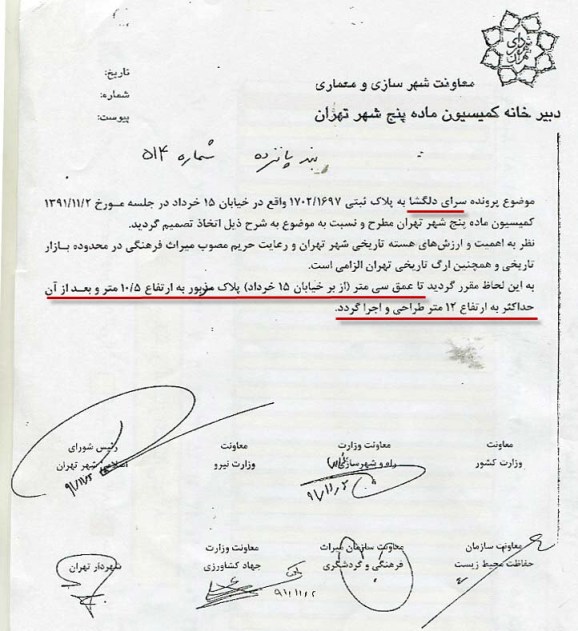 معاونت شهر سازی و معماری
دبیر خانه کمیسیون ماده پنج شهر تهران
تاریخ:
شماره:
پیوست:
بند پانزده شماره ۵۱۴
موضوع پرونده سرای دلگشا به پلاک ثبتی ۱۷۰۲/۱۶۹۷ واقع در خیابان ۱۵ خرداد در جلسه مـورخ ۱۳۹۱/۱۱/۲
کمیسیون ماده پنج شهر تهران مطرح و نسبت به موضوع به شرح ذیل اتخاذ تصمیم گردید.
نظر به اهمیت و ارزش‌های هسته تاریخی شهر تهران و رعایت حریم مصوب میراث فرهنگی در محدوده بازار
تاریخی و همچنین ارگ تاریخی تهران الزامی است.
به این لحاظ مقرر گردید تا عمق سی متر (از بر خیابان ۱۵ خرداد) پلاک مزبور به ارتفاع ۱۰/۵ متر و بعـد از آن
حداکثر به ارتفاع ۱۲ متر طراحی و اجرا گردد.
معاونت
وزارت کشور
معاونت وزارت
راه و شهرسازی
۹۱/۱۱/۲
معاونت
وزارت نیرو
رئیس شورای
اسلامی شهر تهران
۹۱/۱۱/۲
معاونت سازمان
حفاظت محیط زیست
معاونت سازمان میراث
فرهنگی و گردشگری
معاونت وزارت
جهاد کشاورزی
۹۱/۱۱/۲
شهردار تهران